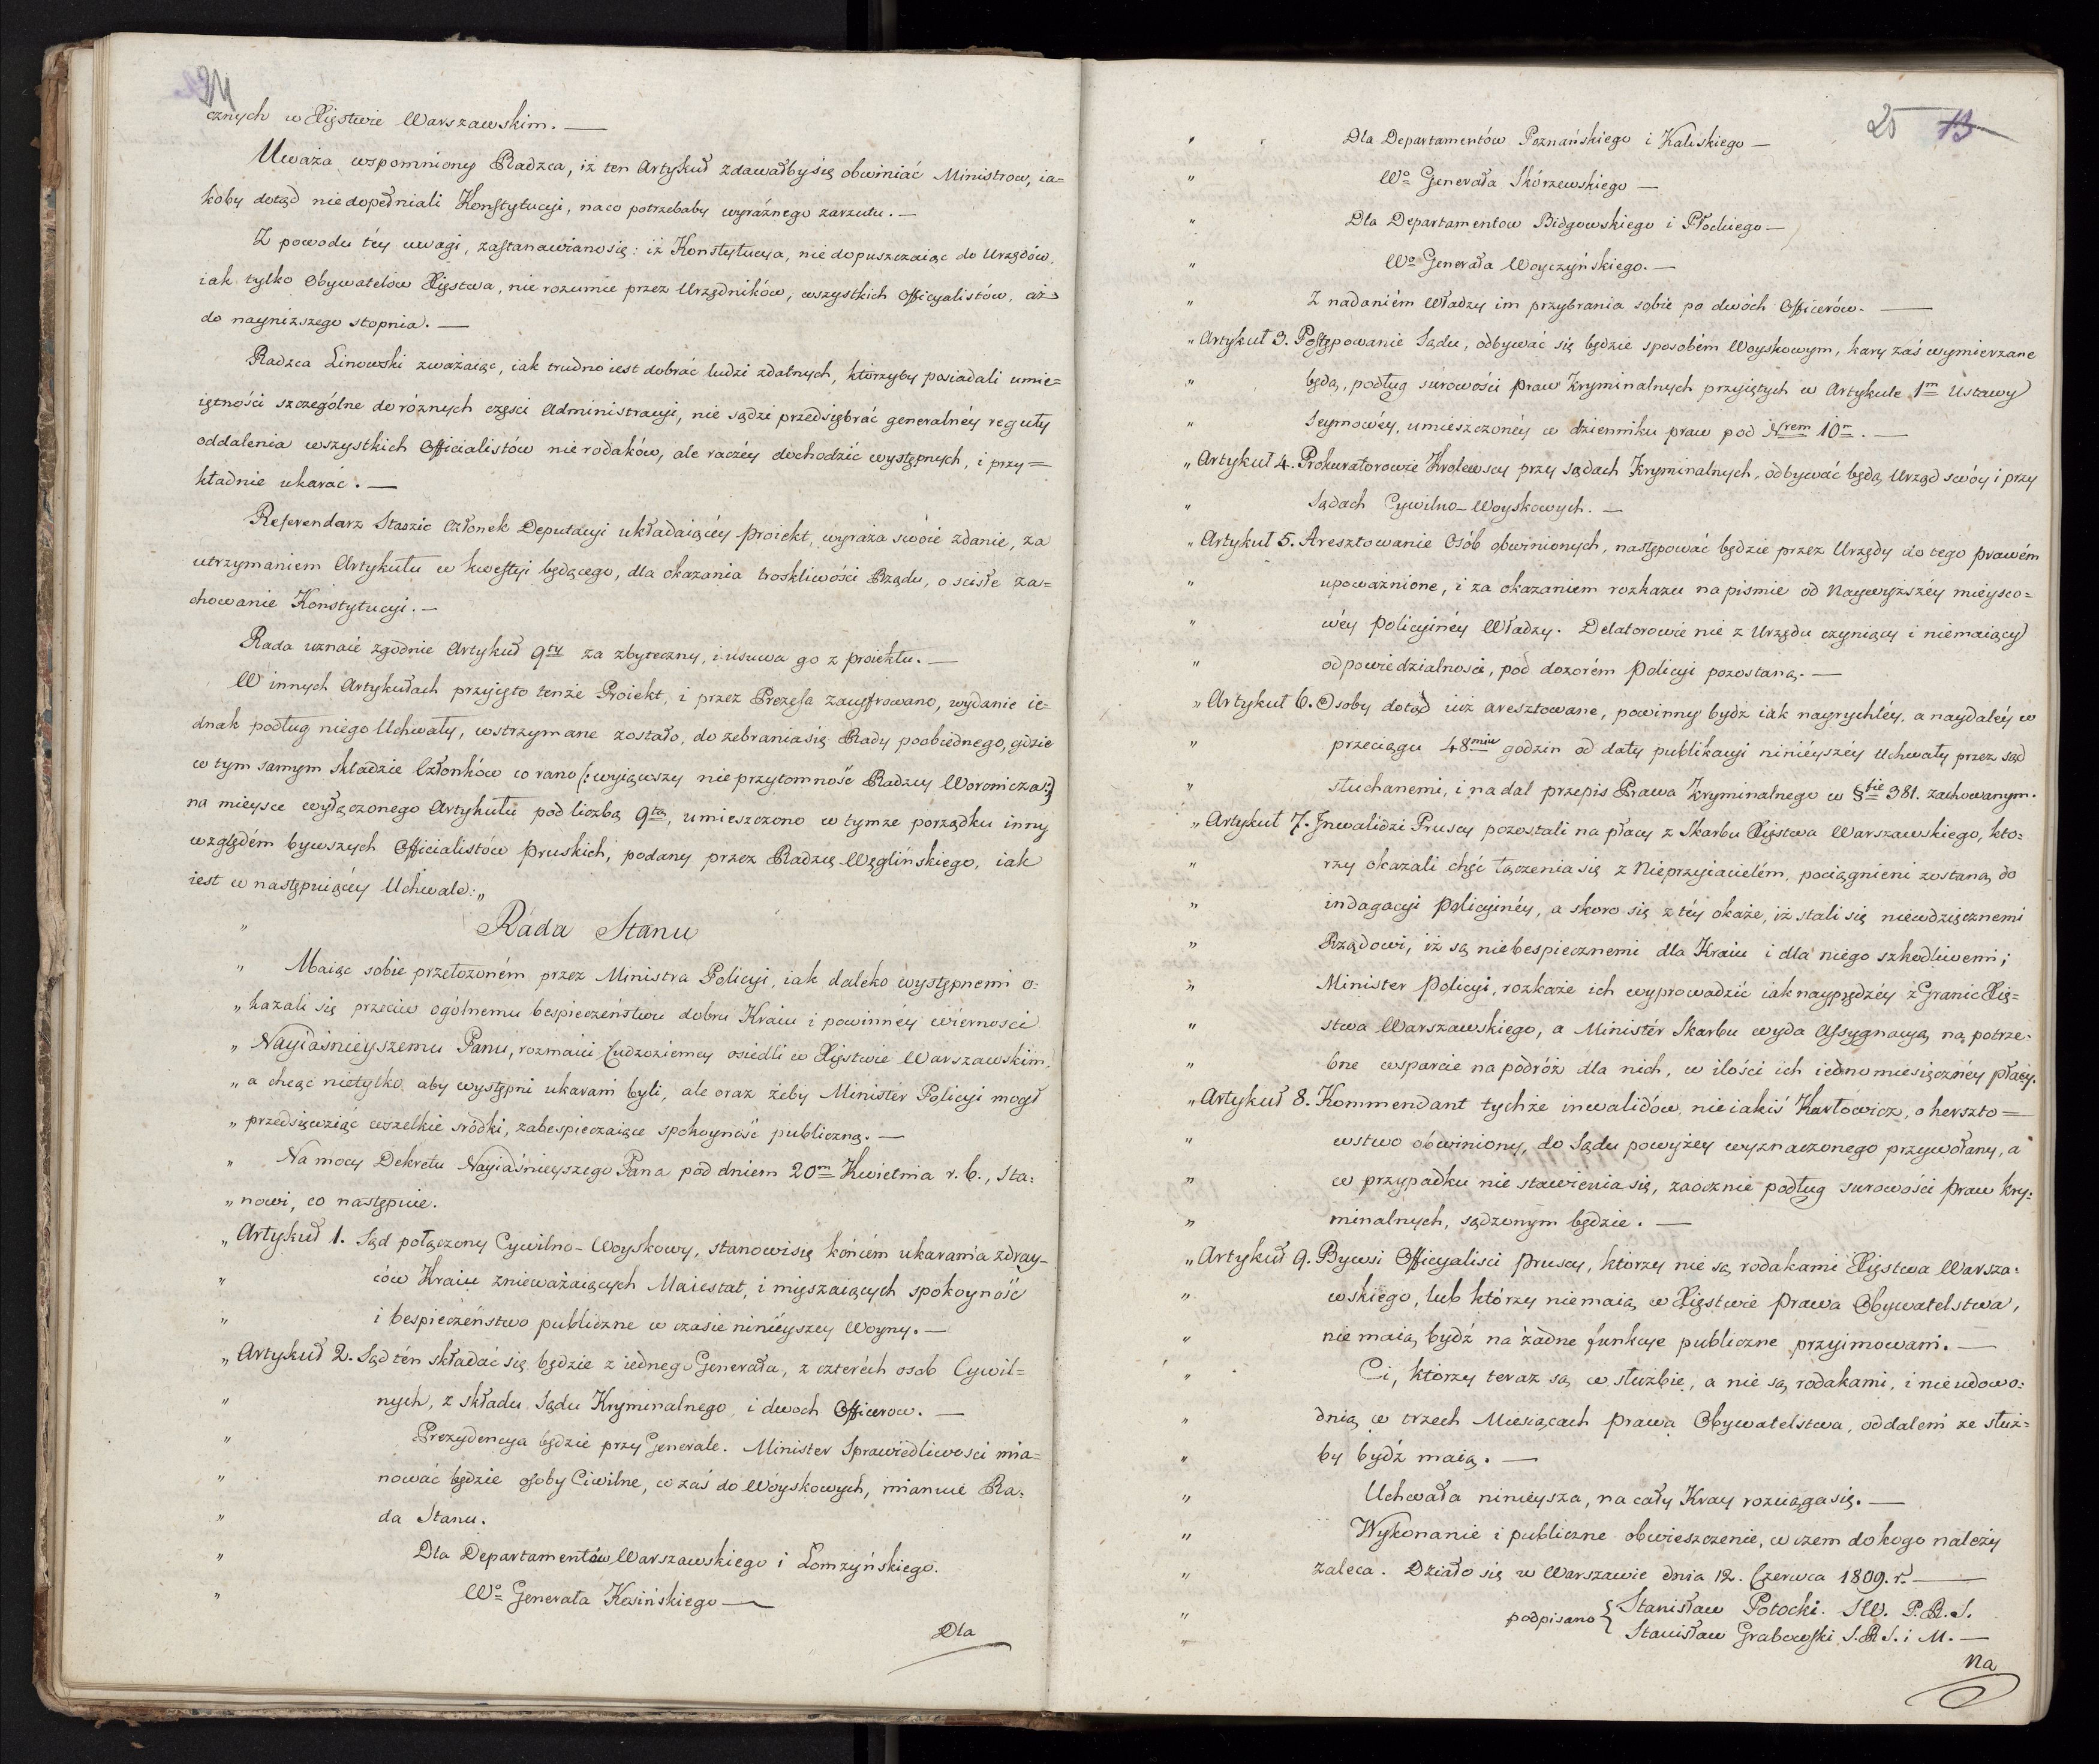 24
cznych w Xięstwie Warszawskim. —
Uważa wspomniony Radzca, iż ten Artykuł zdawałby się obwiniać Ministrow, ia=
koby dotąd niedopełniali Konstytucyi, naco potrzebaby wyraźnego zarzutu. —
Z powodu téy uwagi, zastanawiano się: iż Konstytucya, nie dopuszczaiąc do Urzędów,
iak tylko Obywatelów Xięstwa, nie rozumie przez Urzędników, wszystkich Officyalistów, aż
do nayniższego stopnia. —
Radzca Linowski zważaiąc, iak trudno iest dobrać ludzi zdatnych, którzyby posiadali umie=
iętności szczególne do różnych części Administracyi, nie sądzi przedsiębrać generalnéy reguły
oddalenia wszystkich Officialistów nie rodaków, ale raczéy dochodzić występnych, i przy=
kładnie ukarać. —
Referendarz Staszic Członek Deputacyi układaiącéy proiekt, wyraża swóie zdanie, za
utrzymaniem Artykułu w kwestyi będącego, dla okazania troskliwości Rządu, o scisłe za=
chowanie Konstytucyi. —
Rada uznaie zgodnie Artykuł 9ty za zbyteczny, i usuwa go z proiektu. —
W innych Artykułach przyięto tenże Proiekt, i przez Prezesa zacyfrowano, wydanie ie=
dnak podług niego Uchwały, wstrzymane zostało, do zebrania się Rady poobiednego, gdzie
w tym samym składzie Członków co rano (: wyiąwszy nieprzytomność Radzcy Woronicza :)
na mieysce wyłączonego Artykułu pod liczbą 9tą, umieszczono w tymże porządku inny
względém bywszych Officialistów pruskich, podany przez Radzcę Węglińskiego, iak
iest w następuiącéy Uchwale: „
" Rada Stanu
„ Maiąc sobie przełożoném przez Ministra Policyi, iak daleko występnemi o=
„ kazali się przeciw ogólnemu bespieczeństwu dobru Kraiu i powinnéy wierności
„ Nayiaśnieyszemu Panu, rozmaici Cudzoziemcy osiedli w Xięstwie Warszawskim,
„ a chcąc nietylko aby występni ukarani byli, ale oraz żeby Ministér Policyi mogł
„ przedsięwziąć wszelkie srődki, zabespieczaiące spokoyność publiczną. —
„ Na mocy Dekretu Nayiaśnieyszego Pana pod dniem 20m Kwietnia r. b., Sta=
„ nowi, co następuie.
„ Artykuł 1. Sąd połączony Cywilno-Woyskowy, stanowi się końcém ukarania zdray=
" ców Kraiu znieważaiących Maiestat, i mięszaiących spokoyność
" i bespieczeństwo publiczne w czasie ninieyszey Woyny. —
„ Artykuł 2. Sąd tén składać się będzie z iednego Generała, z czterech osob Cywil=
" nych, z składu Sądu Kryminalnego i dwoch Officerow. —
" Prezydencya będzie przy Generale. Minister Sprawiedliwości mia=
" nować będzie osoby Ciwilne, co zaś do Woyskowych, mianuie Ra=
" da Stanu.
" Dla Departamentów Warszawskiego i Łomzyńskiego.
" Wo Generała Kosińskiego —
Dla
25 13
" Dla Departamentów Poznańskiego i Kaliskiego —
" Wo Generała Skórzewskiego —
" Dla Departamentow Bidgowskiego i Płockiego —
" Wo Generała Woyczyńskiego. —
" Z nadaniém Władzy im przybrania sobie po dwóch Officerów. —
„ Artykuł 3. Postępowanie Sądu, odbywać się będzie sposobém Woyskowym, kary zaś wymierzane
" będą, podług surowości praw Kryminalnych przyiętych w Artykule 1m Ustawy
" Seymowéy, umieszczonéy w dzienniku praw pod Nrem 10m. —
„ Artykuł 4. Prokuratorowie Krolewscy przy sądach Kryminalnych, odbywać będą Urząd swóy i przy
" Sądach Cywilno-Woyskowych. —
„ Artykuł 5. Aresztowanie Osób obwinionych, następować będzie przez Urzędy do tego prawém
" upoważnione, i za okazaniem rozkazu na pismie od Naywyższéy mieysco=
" wéy Policyinéy Władzy. Delatorowie nie z Urzędu czyniący i niemaiący
" odpowiedzialności, pod dozorém Policyi pozostaną. —
„ Artykuł 6. Osoby dotąd iuż aresztowane, powinny bydz iak nayrychléy, a naydaléy w
" przeciągu 48miu godzin od daty publikacyi ninieyszéy Uchwały przez sąd
" słuchanemi, i nadal przepis Prawa Kryminalnego w §fie 381. zachowanym.
„ Artykuł 7. Inwalidzi Pruscy pozostali na płacy z Skarbu Xięstwa Warszawskiego, kto=
" rzy okazali chęć łączenia się z Nieprzyiacielém, pociągnieni zostaną do
" indagacyi Policyinéy, a skoro się z téy okaże, iż stali się niewdzięcznemi
" Rządowi, iż są niebespiecznemi dla Kraiu i dla niego szkodliwemi;
" Minister Policyi, rozkaże ich wyprowadzić iak nayprędzéy z Granic Xię=
" stwa Warszawskiego, a Ministér Skarbu wyda Assygnacyą na potrze=
" bne wsparcie na podróż dla nich, w ilości ich iednomiesięcznéy płacy.
„ Artykuł 8. Kommendant tychże inwalidów, nieiakiś Karłowicz, o herszto=
" wstwo obwiniony, do Sądu powyżey wyznaczonego przywołany, a
" w przypadku nie stawienia się, zaocznie podług surowości praw kry=
" minalnych, sądzonym będzie. —
„ Artykuł 9. Bywsi Officyalisci pruscy, którzy nie są rodakami Xięstwa Warsza=
" wskiego, lub którzy niemaią w Xięstwie prawa Obywatelstwa,
" nie maią bydź na żadne funkcye publiczne przyimowani. —
" Ci, ktorzy teraz są w służbie, a nie są rodakami, i nieudowo=
" dnią w trzech Miesiącach prawa Obywatelstwa, oddaleni ze służ=
" by bydź maią. —
" Uchwała ninieysza, na cały Kray rozciąga się. —
" Wykonanie i publiczne obwieszczenie, w czem do kogo należy
" zaleca. Działo się w Warszawie dnia 12. Czerwca 1809. r. —
" podpisano { Stanisław Potocki. SW. P.R.S.
" Stanisław Grabowski S.R.S. i M. —
Na